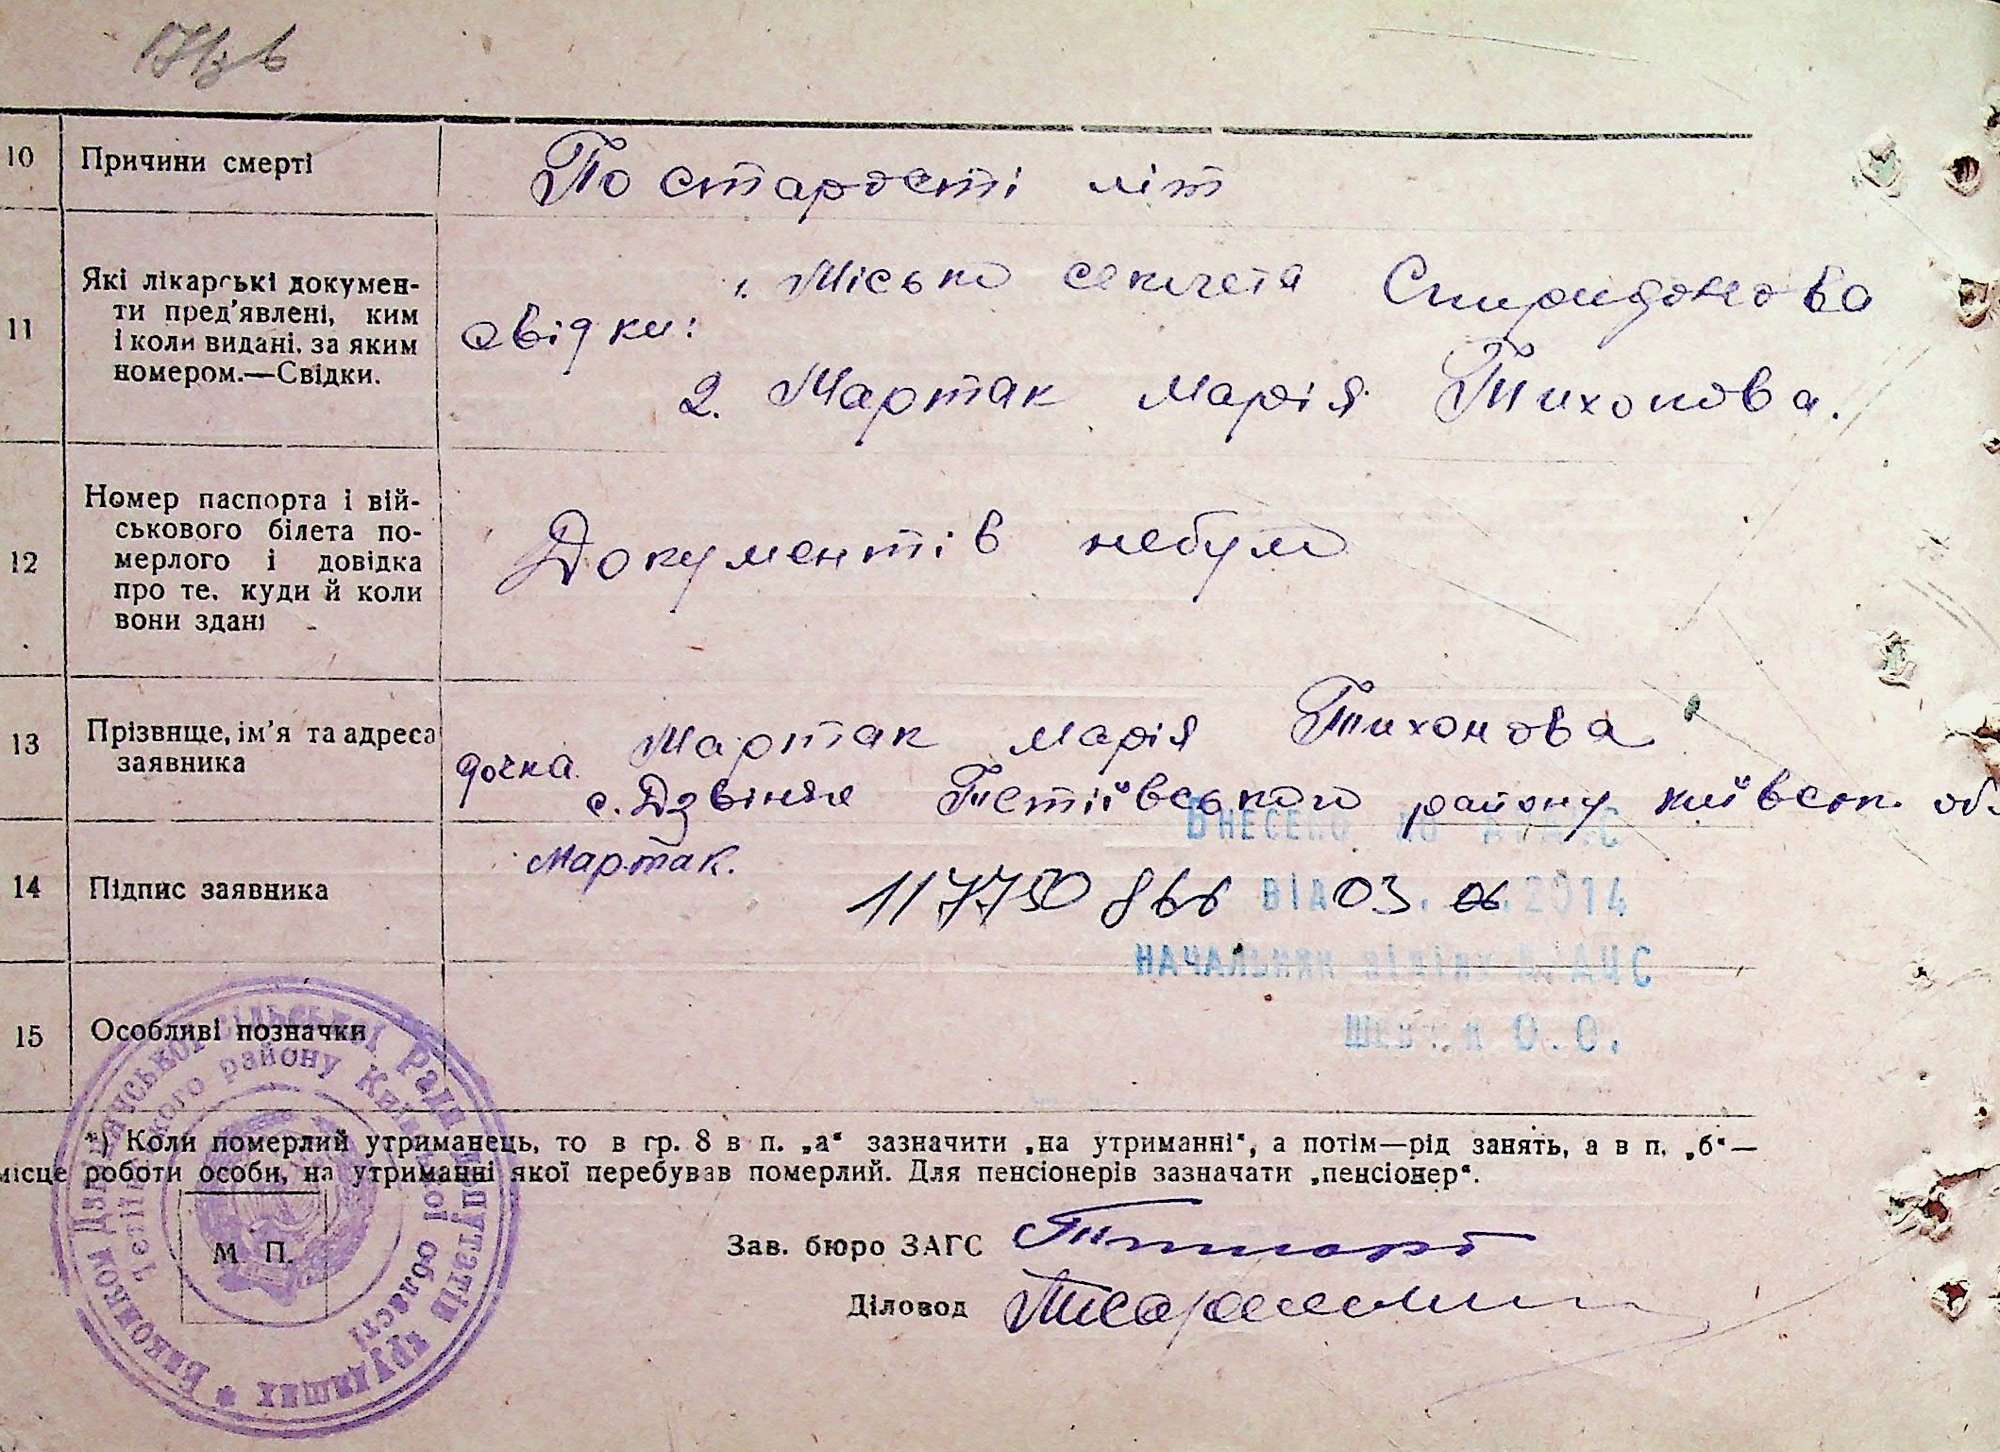 10 Причини смерті По старості літ
11 Які лікарські докумен-
ти пред'явлені, ким
і коли видані, за яким
номером.—Свідки.
свідки: 1. Місько секлета Спиридонова
2. Мартак марія Тихонова.
12 Номер паспорта і вій-
ськового білета по-
мерлого і довідка
про те, куди й коли
вони здані
Документів небуло
13 Прізвище, ім'я та адреса
заявника
дочка Мартак марія Тихонова
с. Дзвіняче Тетіївського району київськ. обл
14 Підпис заявника
Мартак.
Внесено до ДРАЦС
117750866 від 03. 06.2014
начальник відділу ДРАЦС
О.О.
15 Особливі позначки
*) Коли померлий утриманець, то в гр. 8 в п. „а“ зазначити „на утриманні“, а потім—рід занять, а в п. „б“—
місце роботи особи, на утриманні якої перебував померлий. Для пенсіонерів зазначати „пенсіонер“.
М. П.
Зав. бюро ЗАГС
Діловод
Виконком Дзвеняцької сільської Ради депутатів трудящих
Тетіївського району Київської області